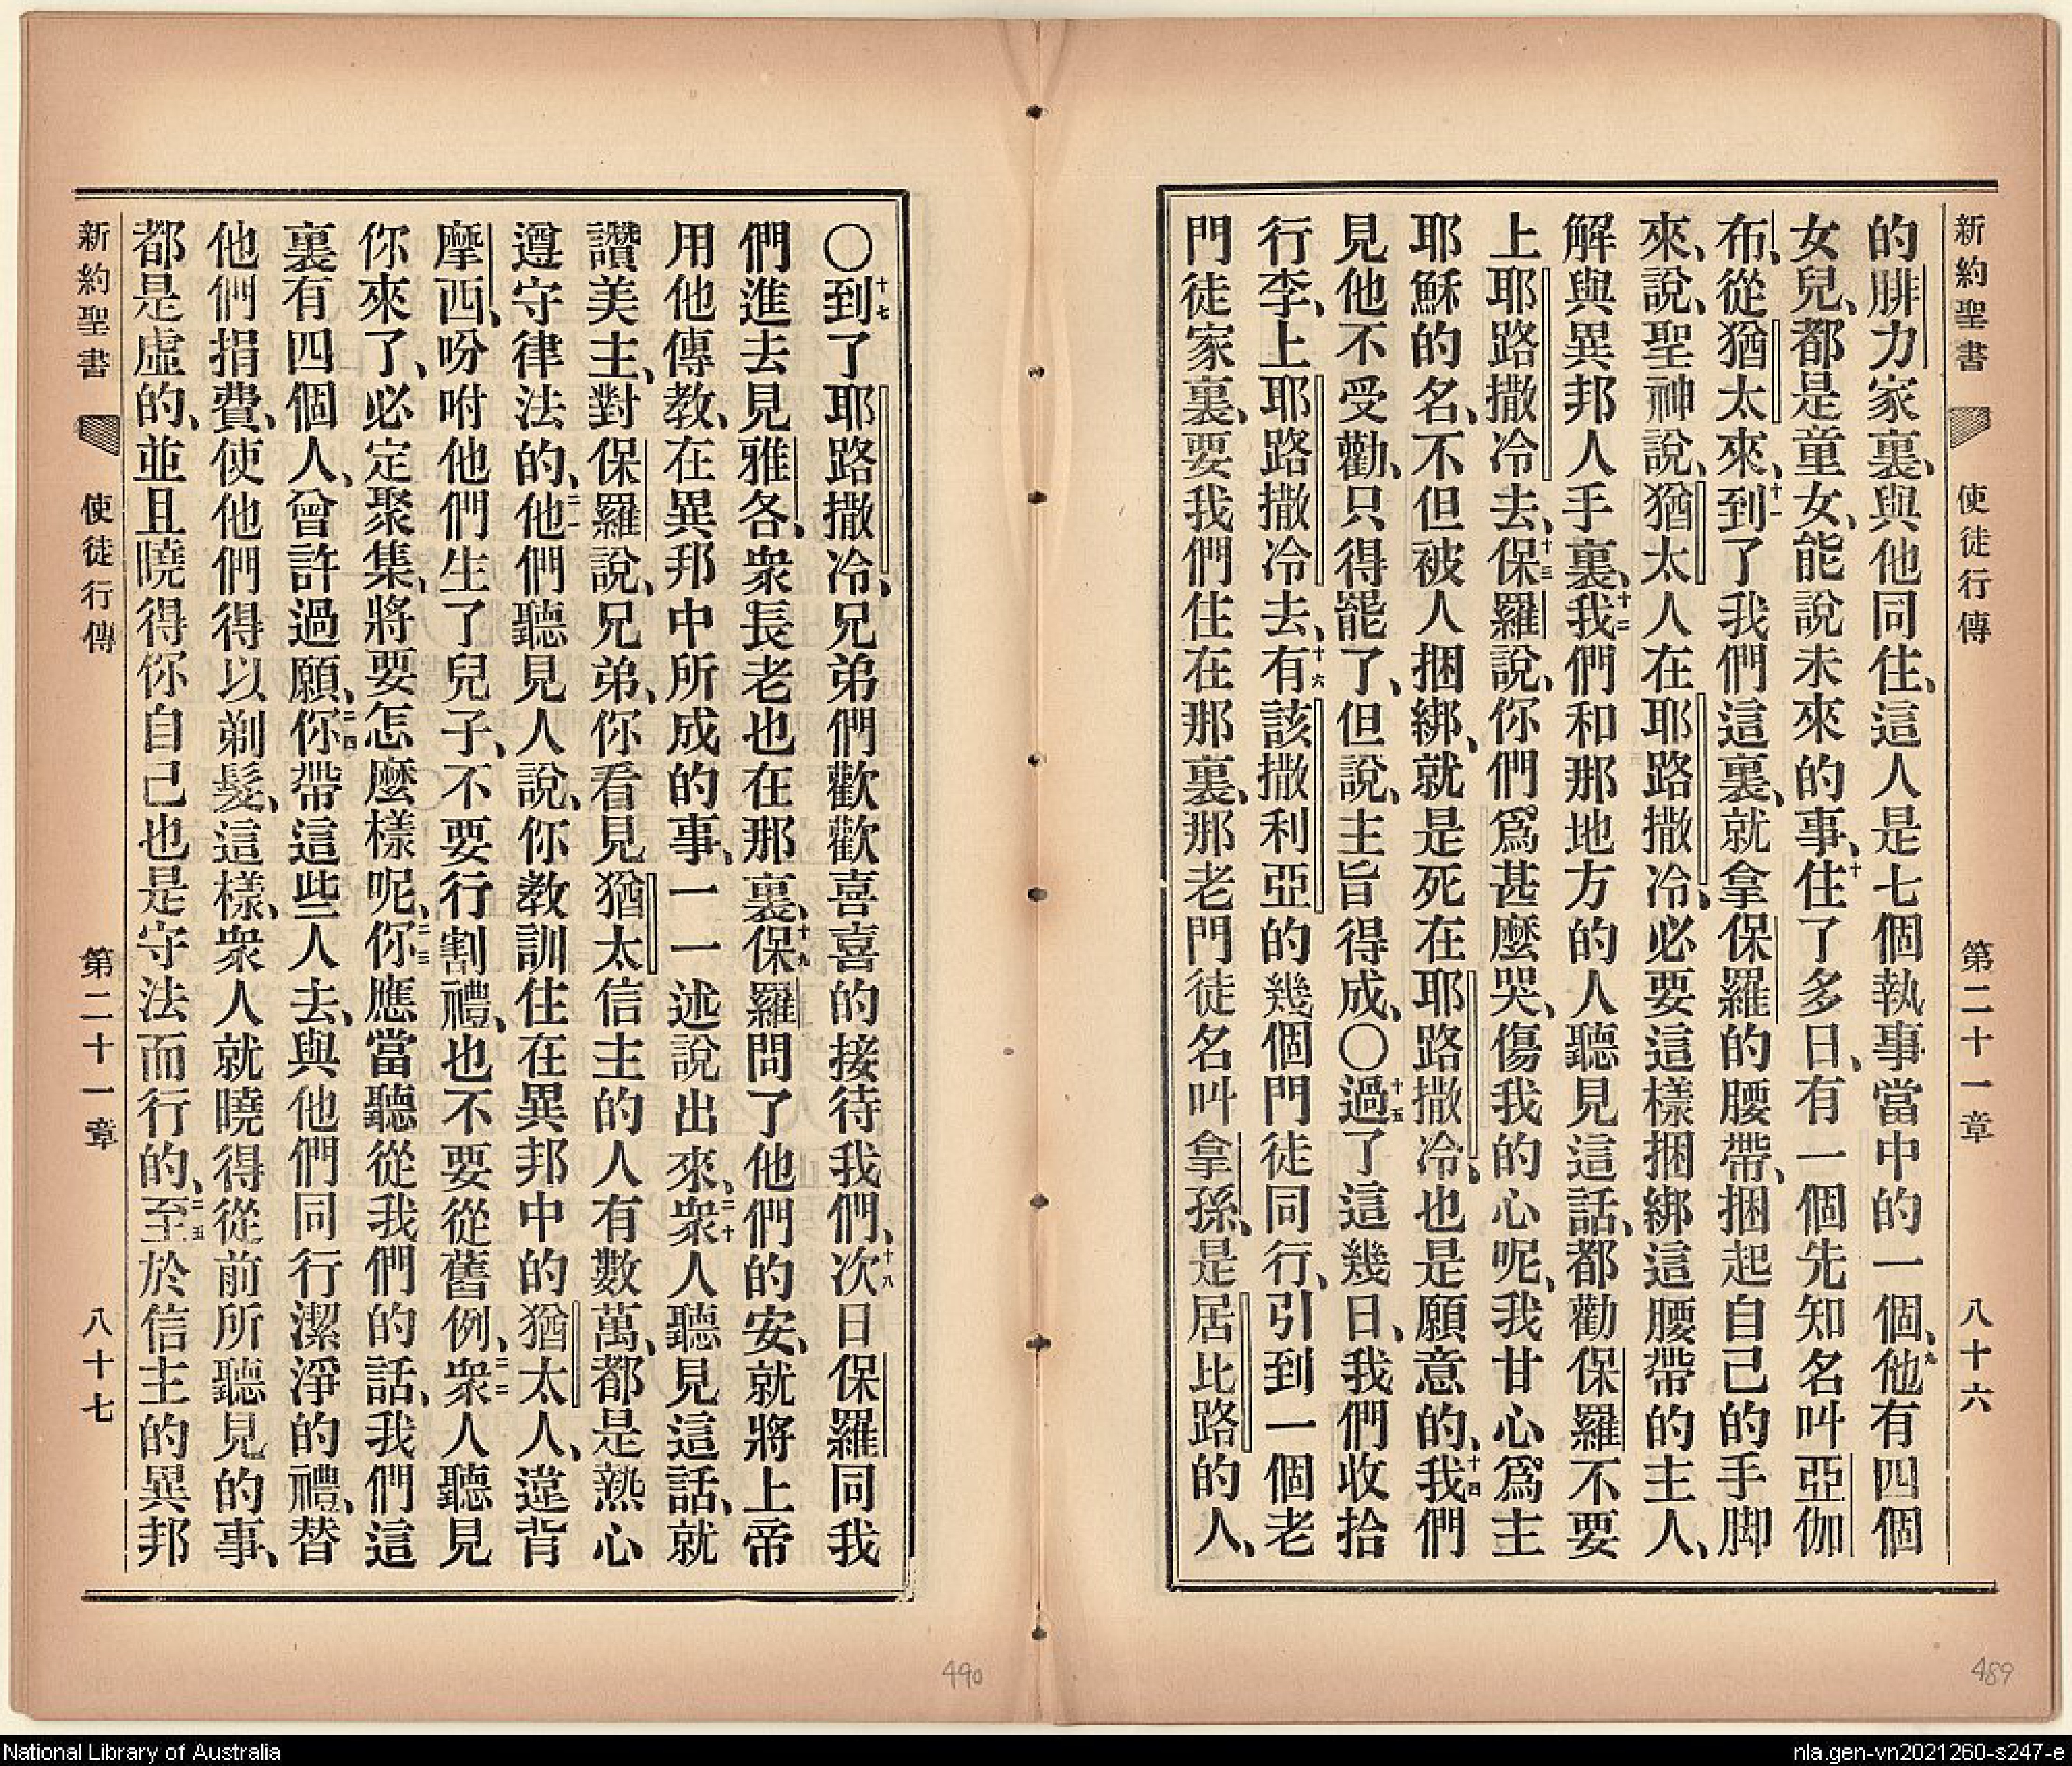 新約聖書 使徒行傳 第二十一章 八十六
的腓力家裏、與他同住、這人是七個執事當中的一個、九他有四個
女兒、都是童女、能說未來的事、十住了多日、有一個先知名叫亞伽
布、從猶太來、十一到了我們這裏、就拿保羅的腰帶、捆起自己的手脚
來、說、聖神說、猶太人在耶路撒冷、必要這樣捆綁這腰帶的主人、
解與異邦人手裏、十二我們和那地方的人聽見這話、都勸保羅不要
上耶路撒冷去、十三保羅說、你們爲甚麼哭、傷我的心呢、我甘心爲主
耶穌的名、不但被人捆綁、就是死在耶路撒冷、也是願意的、十四我們
見他不受勸、只得罷了、但說、主旨得成、〇十五過了這幾日、我們收拾
行李、上耶路撒冷去、十六有該撒利亞的幾個門徒同行、引到一個老
門徒家裏、要我們住在那裏、那老門徒名叫拿孫、是居比路的人、
〇十七到了耶路撒冷、兄弟們歡歡喜喜的接待我們、十八次日保羅同我
們進去見雅各、衆長老也在那裏、十九保羅問了他們的安、就將上帝
用他傳教、在異邦中所成的事、一一述說出來、二十衆人聽見這話、就
讚美主、對保羅說、兄弟、你看見猶太信主的人有數萬、都是熱心
遵守律法的、二一他們聽見人說、你教訓住在異邦中的猶太人、違背
摩西、吩咐他們生了兒子、不要行割禮、也不要從舊例、二二衆人聽見
你來了、必定聚集、將要怎麼樣呢、二三你應當聽從我們的話、我們這
裏有四個人、曾許過願、二四你帶這些人去、與他們同行潔淨的禮、替
他們捐費、使他們得以剃髮、這樣、衆人就曉得從前所聽見的事、
都是虛的、並且曉得你自己也是守法而行的、二五至於信主的異邦
新約聖書 使徒行傳 第二十一章 八十七
490
489
National Library of Australia
nla.gen-vn2021260-s247-e